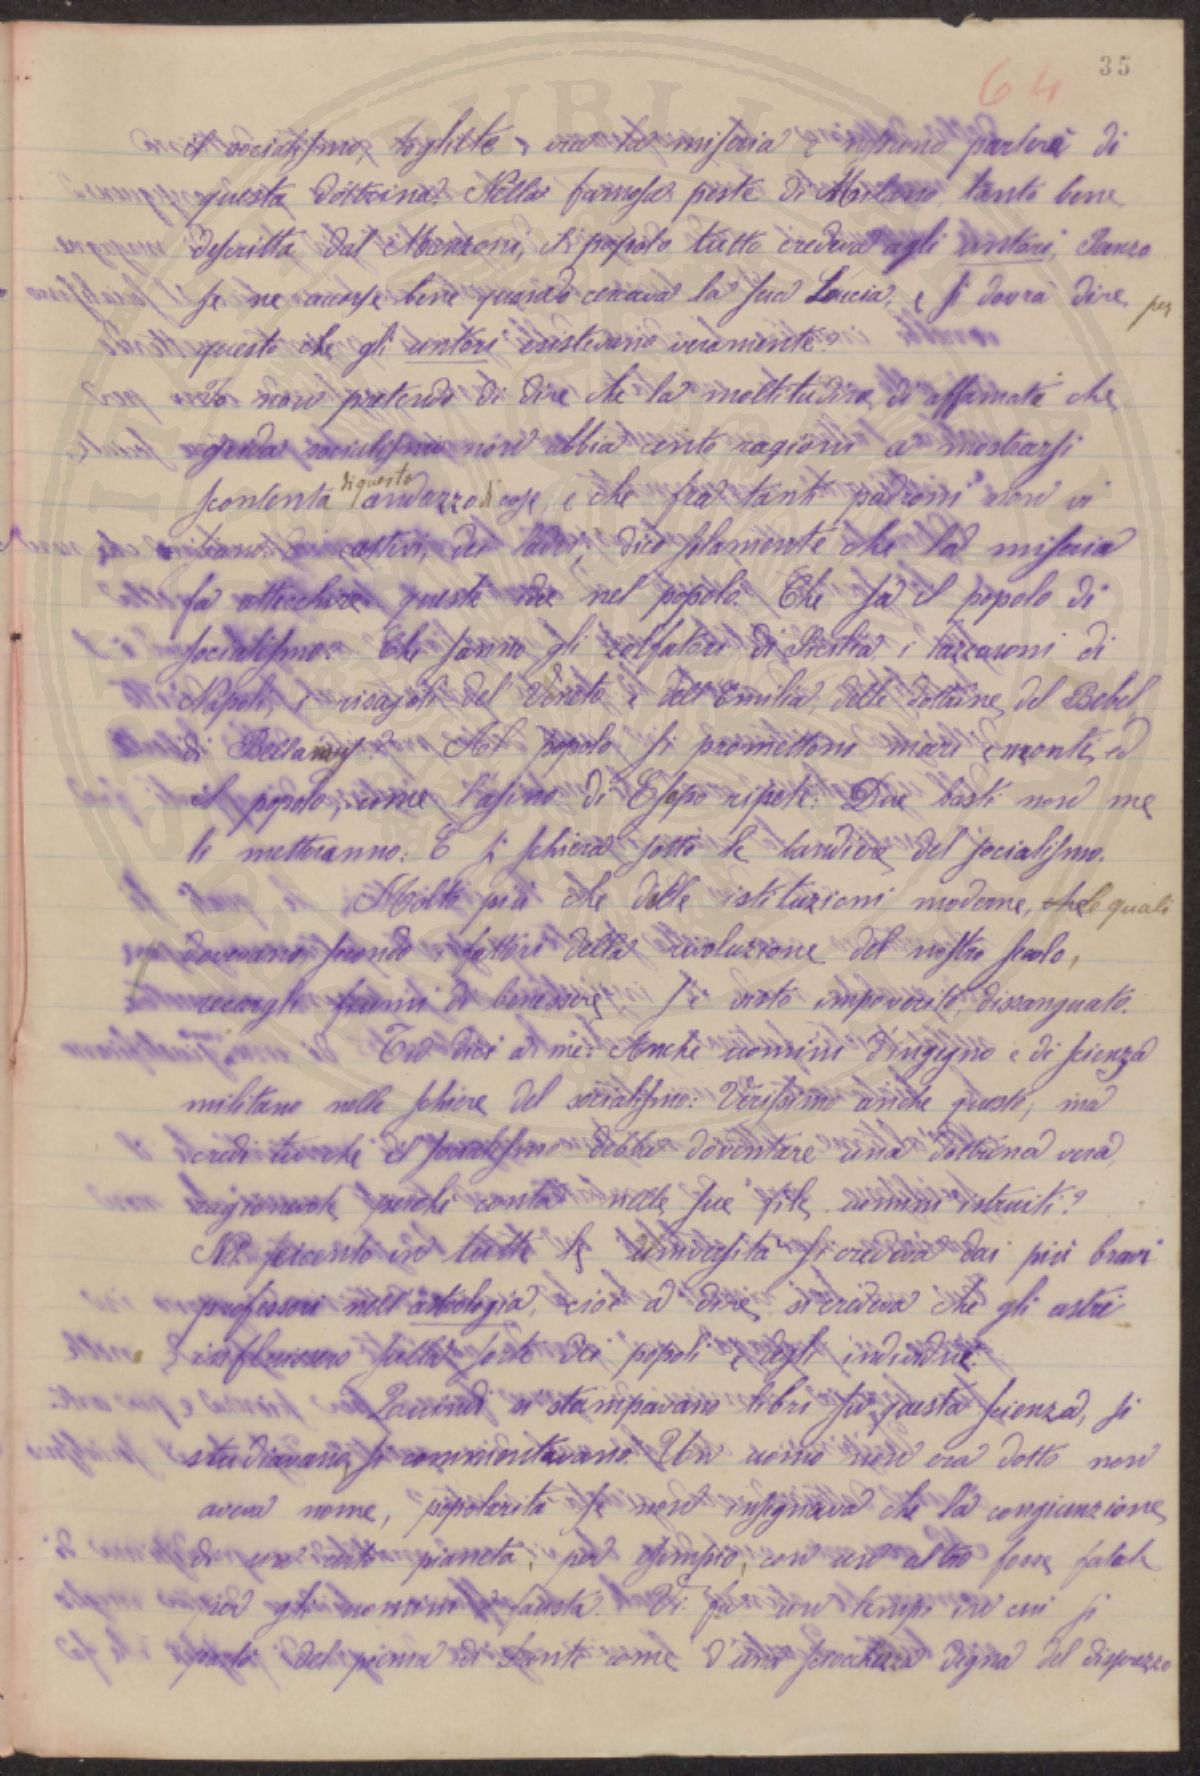 35
64
il socialismo, togliete via la miseria e nessuno parlerà di
questa dottrina. Nella famosa peste di Milano, tanto bene
descritta dal Manzoni, il popolo tutto credeva agli untori, Renzo
se ne accorse bene quando cercava la sua Lucia, e si dovrà dire per
questo che gli untori esistevano veramente?
Io non pretendo di dire che la moltitudine di affamati che
grida socialismo non abbia cento ragioni a mostrarsi
scontenta di questo andazzo di cose, e che fra tanti padroni non vi
siano dei cattivi, dei ladri, dico solamente che la miseria
fa attecchire queste idee nel popolo. Che sa il popolo di
socialismo? Che sanno gli zolfatari di Sicilia, i lazzaroni di
Napoli, i risajoli del Veneto e dell'Emilia, delle dottrine del Bebel,
di Bellamy? Al popolo si promettono mari e monti, ed
il popolo, come l'asino di Esopo ripete: Due basti non me
li metteranno. E si schiera sotto le bandiere del socialismo.
Molto più che dalle istituzioni moderne, le quali
dovevano, secondo i fattori della rivoluzione del nostro secolo,
recargli fiumi di benessere, s'è visto impoverito, dissanguato.
Tu dici a me: Anche uomini d'ingegno e di scienza
militano nelle schiere del socialismo: Verissimo anche questo, ma
credi tu che il socialismo debba diventare una dottrina vera,
ragionevole perchè conta nelle sue file uomini istruiti?
Nel seicento in tutte le Università si credeva dai più bravi
professori nell'astrologia, cioè a dire, si credeva che gli astri
influissero sulla sorte dei popoli e degli individui.
Quindi si stampavano libri su questa scienza, si
studiavano, si commentavano. Un uomo non era dotto non
aveva nome, popolarità se non insegnava che la congiunzione
di un certo pianeta, per esempio, con un altro fosse fatale
per gli uomini o fausta. Vi fu un tempo in cui si
parlò del poema di Dante come d'una sciocchezza degna del disprezzo